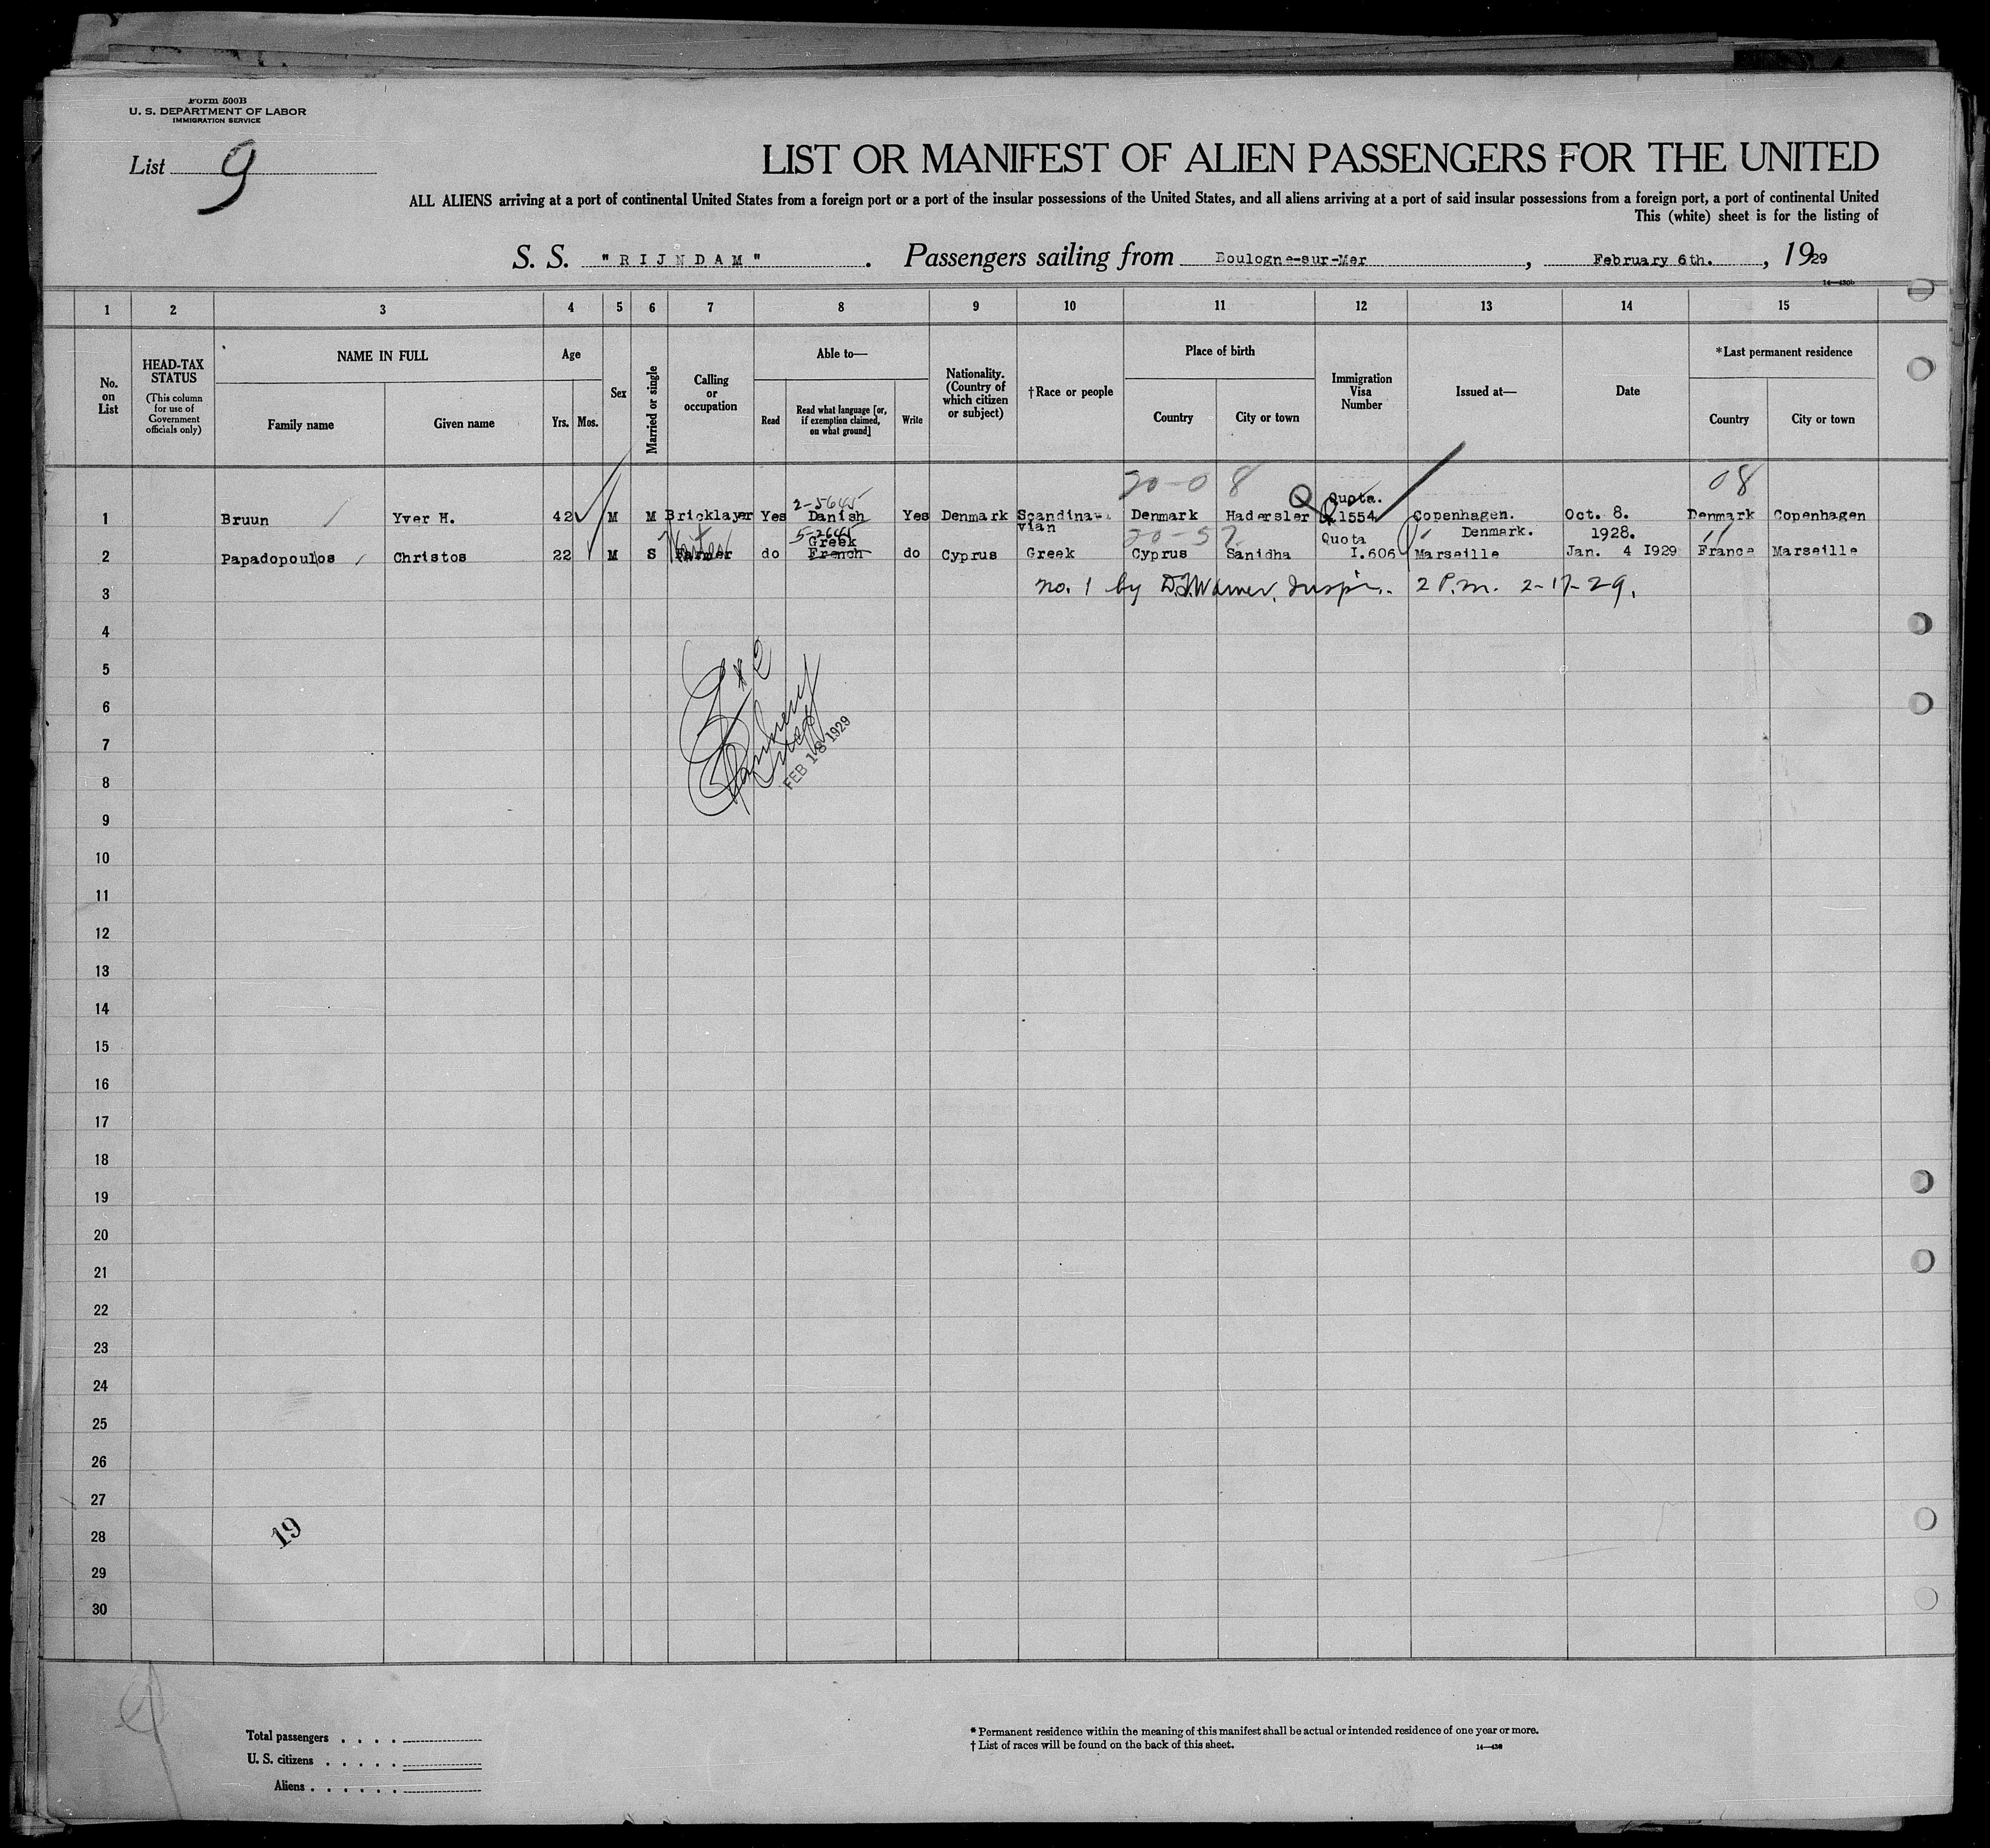 Form 500B
U. S. DEPARTMENT OF LABOR
IMMIGRATION SERVICE
List 9
LIST OR MANIFEST OF ALIEN PASSENGERS FOR THE UNITED
ALL ALIENS arriving at a port of continental United States from a foreign port or a port of the insular possessions of the United States, and all aliens arriving at a port of said insular possessions from a foreign port, a port of continental United
This (white) sheet is for the listing of
S. S. "RIJNDAM". Passengers sailing from Boulogne-sur-Mer, February 6th., 1929
14—430b
1 2 3 4 5 6 7 8 9 10 11 12 13 14 15
No. on List
HEAD-TAX STATUS
(This column for use of Government officials only)
NAME IN FULL
Family name
Given name
Age
Yrs. Mos.
Sex
Married or single
Calling or occupation
Able to—
Read
Read what language [or, if exemption claimed, on what ground]
Write
Nationality. (Country of which citizen or subject)
†Race or people
Place of birth
Country
City or town
Immigration Visa Number
Issued at—
Date
*Last permanent residence
Country
City or town
20-08 08
2-5645 Quota.
1 Bruun Yver H. 42 M M Bricklayer Yes Danish Yes Denmark Scandina- vian Denmark Hadersler 1554 Copenhagen. Denmark. Oct. 8. 1928. Denmark Copenhagen
5-2645 Greek 20-57 Quota 11
2 Papadopoulos Christos 22 M S Farmer do French do Cyprus Greek Cyprus Sanidha I.606 Marseille Jan. 4 1929 France Marseille
3 no. 1 by D.J. Warner, Insp'r. 2 P.m. 2-17-29.
4
5
6
7
FEB 18 1929
8
9
10
11
12
13
14
15
16
17
18
19
20
21
22
23
24
25
26
27
28
19
29
30
Total passengers
U. S. citizens
Aliens
* Permanent residence within the meaning of this manifest shall be actual or intended residence of one year or more.
† List of races will be found on the back of this sheet.
14—430